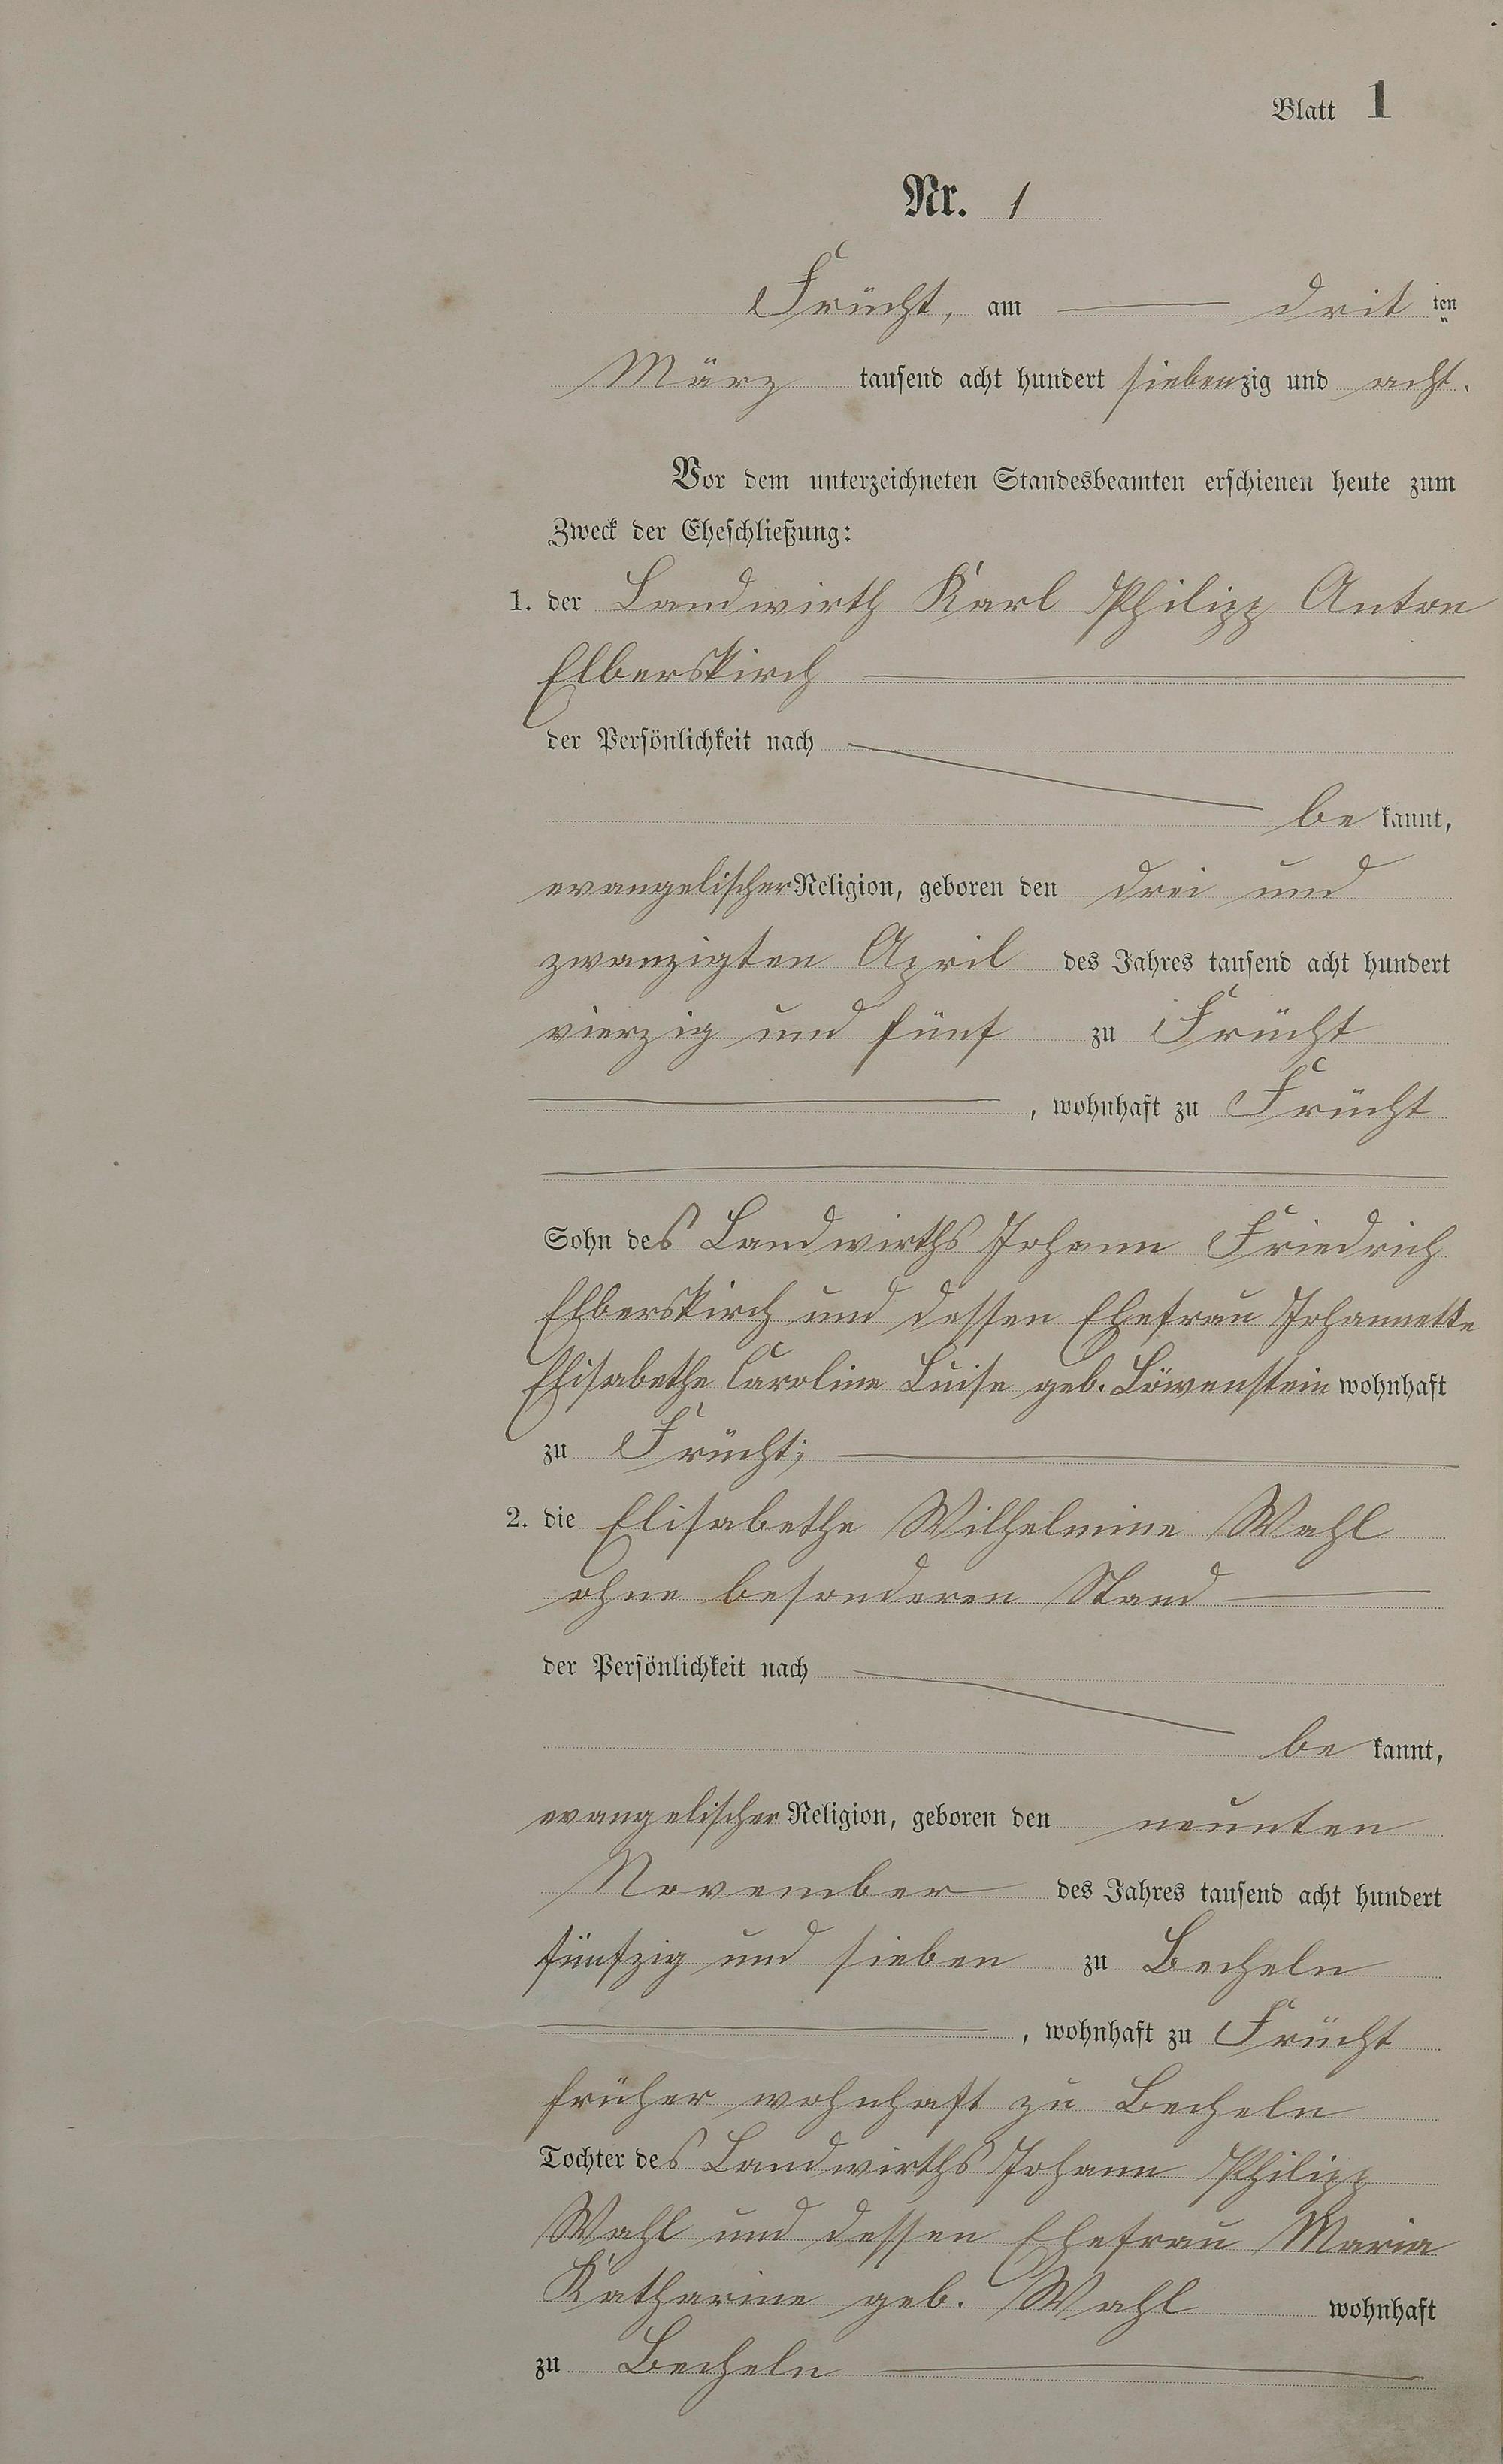 Blatt 1
Nr. 1
Frücht, am drit ten
März tausend acht hundert siebenzig und acht.
Vor dem unterzeichneten Standesbeamten erschienen heute zum
Zweck der Eheschließung:
1. der Landwirth Karl Philipp Anton
Elberskirch
der Persönlichkeit nach
be kannt,
evangelischer Religion, geboren den drei und
zwanzigten April des Jahres tausend acht hundert
vierzig und fünf zu Frücht
, wohnhaft zu Frücht
Sohn des Landwirths Johann Friedrich
Elberskirch und dessen Ehefrau Johannette
Elisabethe Caroline Luise geb. Löwenstein wohnhaft
zu Frücht;
2. die Elisabethe Wilhelmine Wahl
ohne besonderen Stand
der Persönlichkeit nach
be kannt,
evangelischer Religion, geboren den neunten
November des Jahres tausend acht hundert
fünfzig und sieben zu Becheln
, wohnhaft zu Frücht
früher wohnhaft zu Becheln
Tochter des Landwirths Johann Philipp
Wahl und dessen Ehefrau Maria
Katharine geb. Wahl wohnhaft
zu Becheln